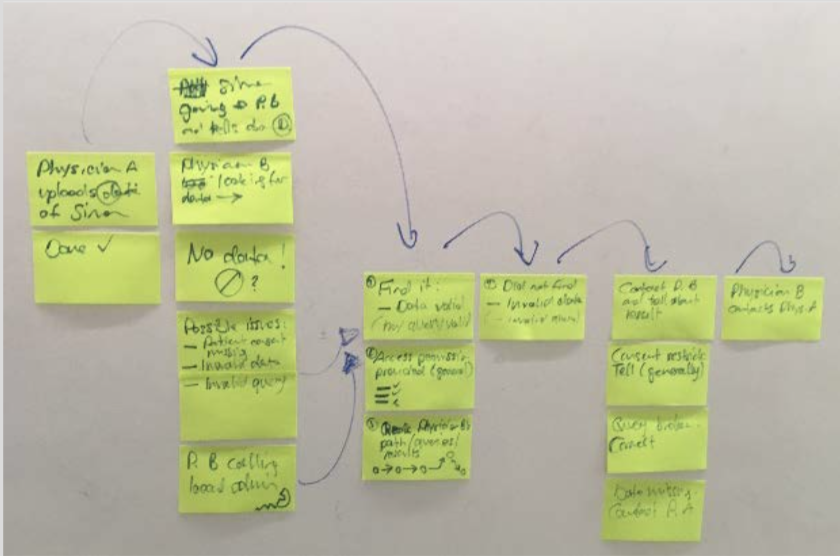 Physician A
uploads data
of Simon
Done ✓
going → P. B
and tells
Physician B
looking for
data →
No data!
?
Possible issues:
- Patient consent
missing
- Invalid data
- Invalid query
P. B calling
local admin
① Find it:
- Data valid
query valid
② Access permission
provided (general)
③ Physician B's
path/queries/
results
Did not find
- Invalid data
Contact P. B
and tell about
result
Consent restrict.
Tell (generally)
Query broken.
Correct
Data missing
Contact P. A
Physician B
contacts Phys. A